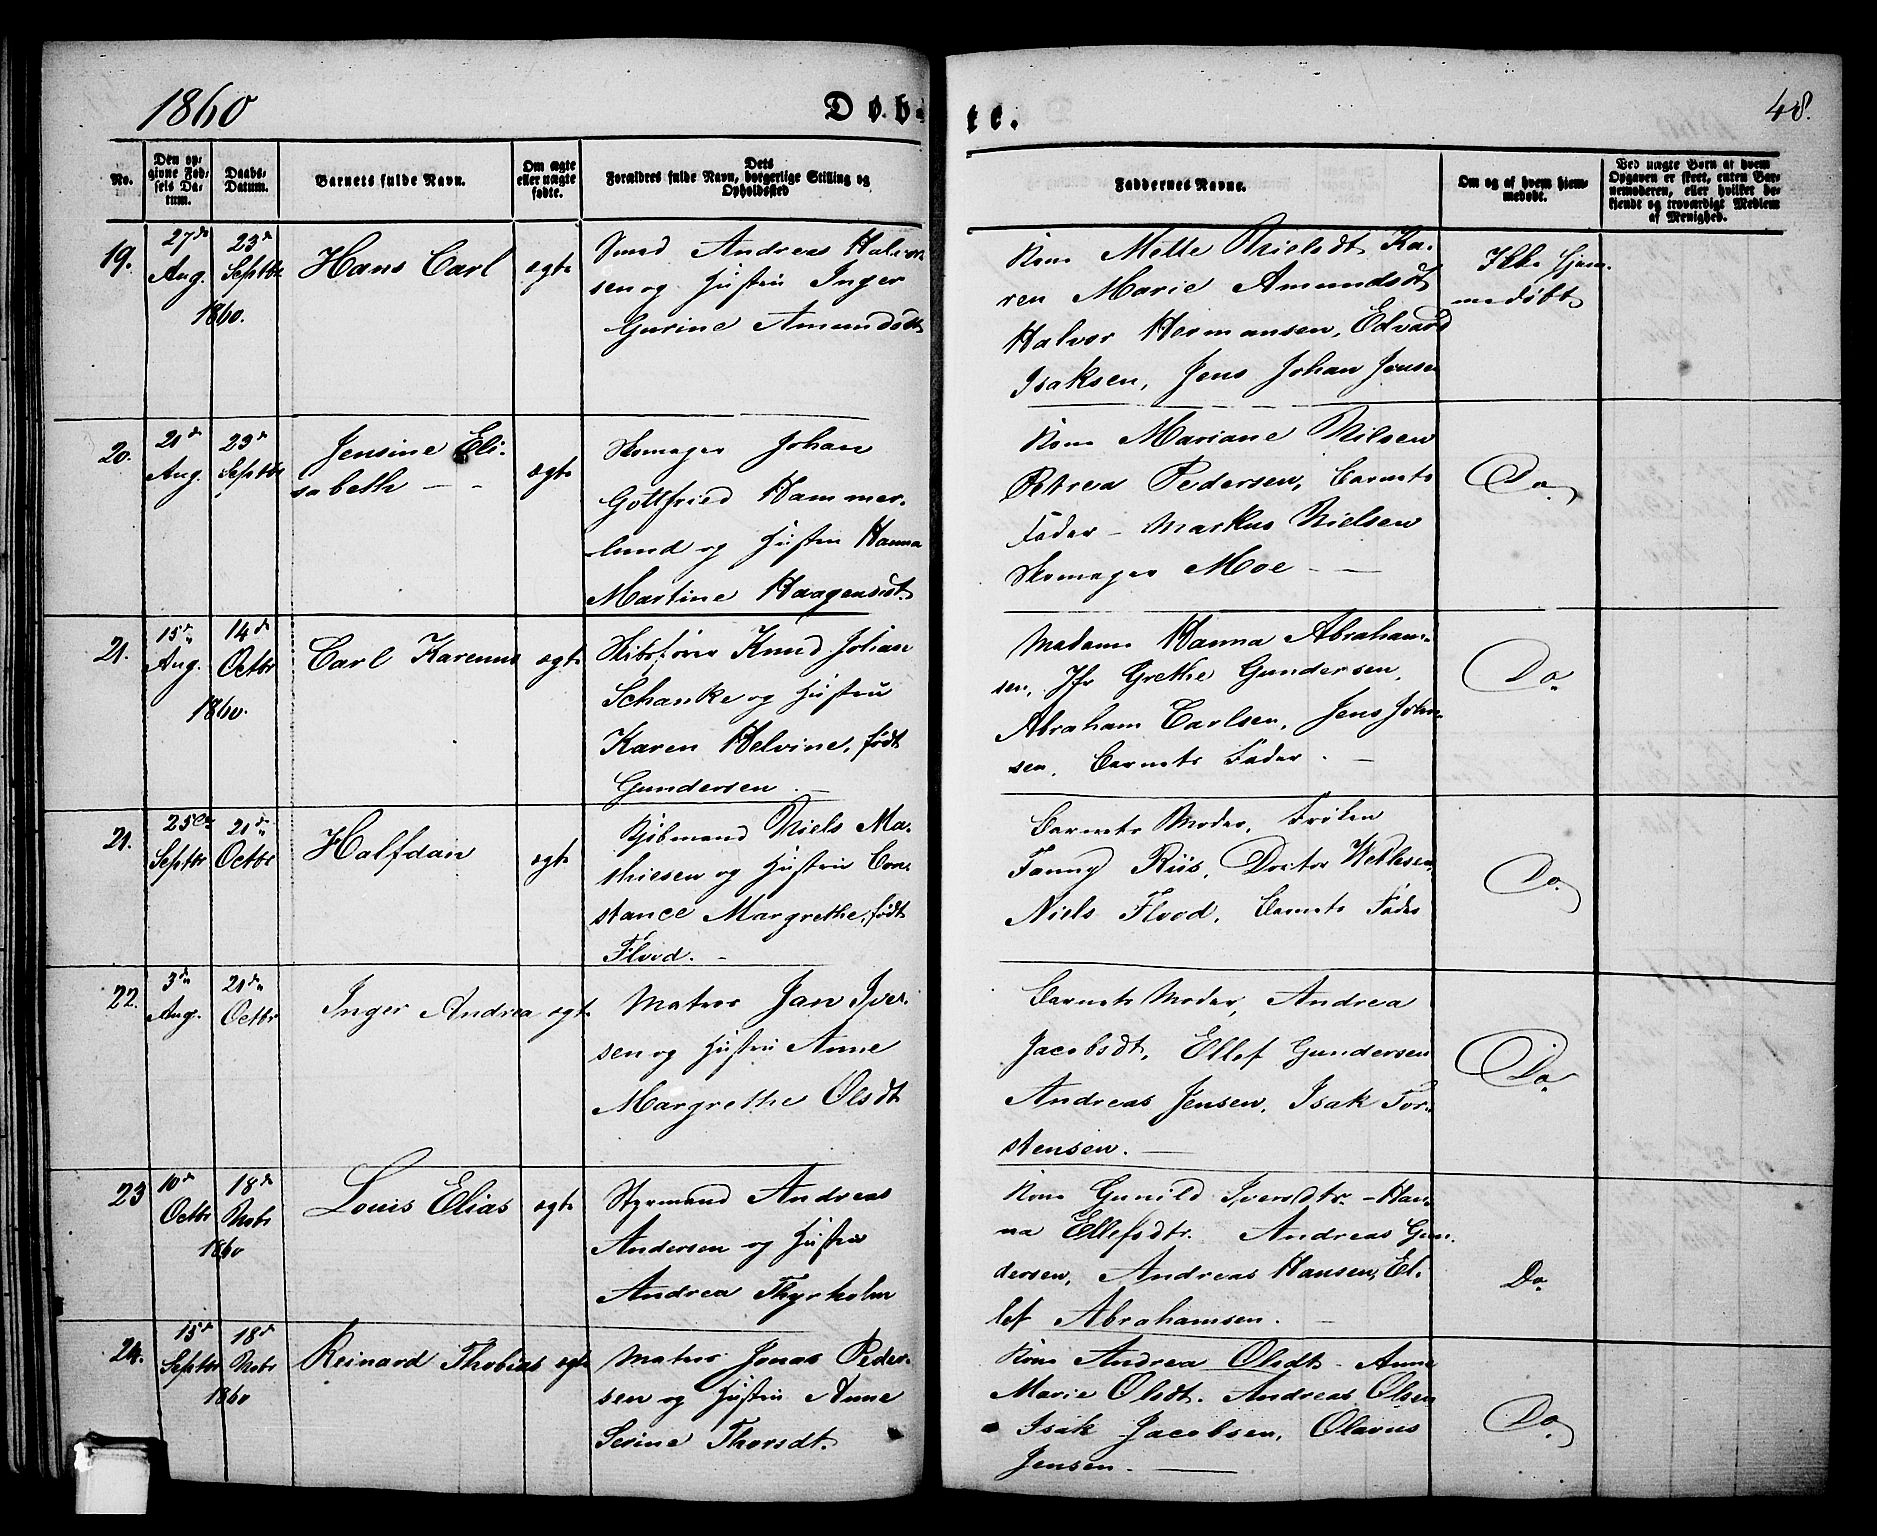 1860
Døb-
te.
48.
No.
Den op-
givne Fød-
sels Da-
tum.
Daabs-
Datum.
Barnets fulde Navn.
Om ægte
eller uægte
fødte.
Dets
Forældres fulde Navn, borgerlige Stilling og
Opholdssted
Faddernes Navne.
Om og af hvem hjem-
medøbt.
Ved uægte Børn at hvem
Opgaven er skeet, enten Bar-
nemoderen, eller hvilket be-
kjendt og troværdigt Medlem
af Menighed.
19.
27de
Aug.
23de
Septbr
1860.
Hans Carl
ægte
Smed Andreas Halvor-
sen og Hustru Inger
Gurine Amundsdt
Kone Mette Nielsdt, Ka-
ren Marie Amundsdt
Halvor Hermansen, Edvard
Isaksen, Jens Johan Jensen
Ikke hjem-
medøbt
20.
21de
Aug.
23de
Septbr
Jensine Eli-
sabeth — -
ægte
Skomager Johan
Gottfried Hammer-
lund og Hustru Hanna
Martine Haagensdt.
Kone Mariane Nilsen
Petrea Pedersen, Barnets
Fader - Markus Nielsen
Skomager Moe - —
Do.
21.
15de
Aug.
14de
Octbr
1860.
Carl Karenus
ægte
Skibsfører Knud Johan
Schanke og Hustru
Karen Helvine, født
Gundersen. —
Madame Hanna Abraham-
sen, Jfr Grethe Gundersen,
Abraham Carlsen, Jens John-
sen, Barnets Fader. —
Do.
21.
25de
Septbr
21de
Octbr
Halfdan
ægte
Kjøbmand Niels Ma-
thiesen og Hustru Con-
stance Margrethe, født
Flood. -
Barnets Moder, Frøken
Fanny Riis, Doctor
Niels Flood, Barnets Fader
Do.
22.
3de
Aug.
21de
Octbr
Inger Andrea
ægte
Matros Jan Iver-
sen og Hustru Anne
Margrethe Olsdt
Barnets Moder, Andrea
Jacobsdt, Ellef Gundersen
Andreas Jensen, Isak Tor-
stensen. —
Do.
23
10de
Octbr
18de
Nobr
1860
Louis Elias
ægte
Styrmand Andreas
Andersen og Hustru
Andrea Thyrholm
Kone Gunild Iversdtr. - Han-
na Ellefsdtr. Andreas Gun-
dersen, Andreas Hansen, El-
lef Abrahamsen. -
Do.
24.
15de
Septbr
18de
Nobr
1860
Reinard Thobias
ægte
Matros Jonas Peder-
sen og Hustru Anne
Serine Thorsdt.
Kone Andrea Olsdt. Anne
Marie Olsdt. Andreas Olsen
Isak Jacobsen, Olavus
Jensen. —
Do.